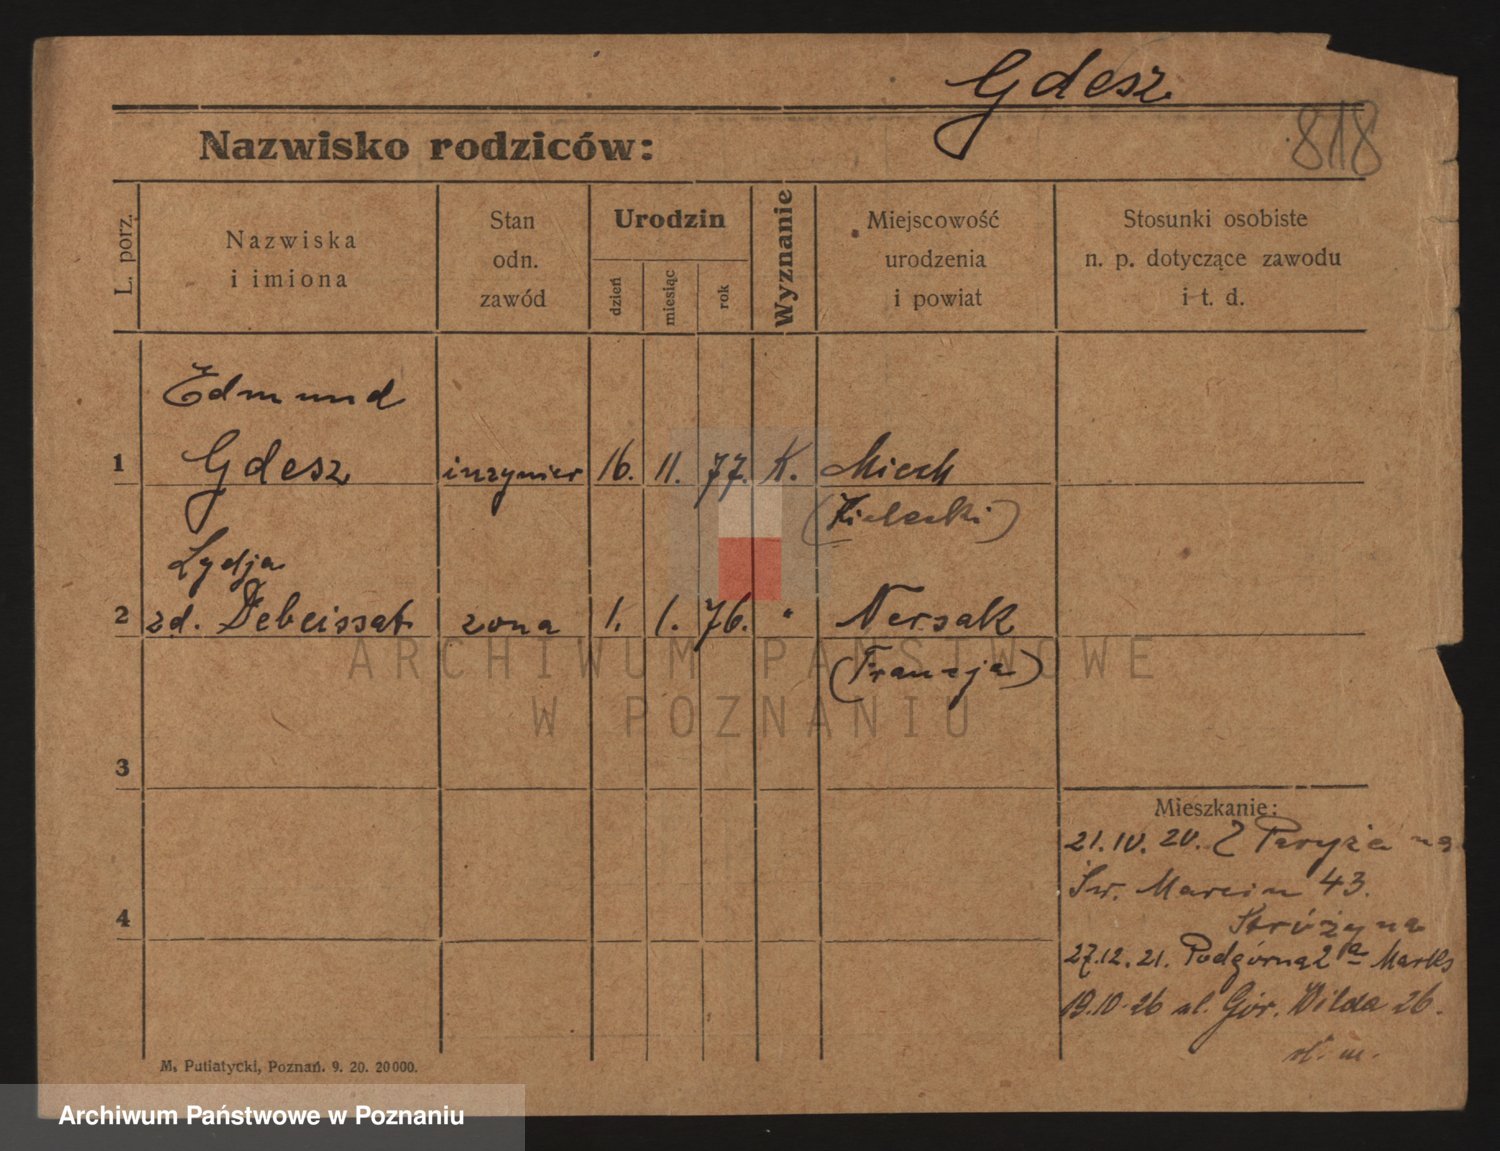 Gdesz
818
Nazwisko rodziców:
L. porz.
Nazwiska
i imiona
Stan
odn.
zawód
Urodzin
dzień
miesiąc
rok
Wyznanie
Miejscowość
urodzenia
i powiat
Stosunki osobiste
n. p. dotyczące zawodu
i t. d.
Edmund
1 Gdesz inżynier 16. 11. 77. K. Miech
(Kielecki)
Lydja
2 zd. Debeissat żona 1. 1. 76. " Nersak
(Francja)
ARCHIWUM PAŃSTWOWE
W POZNANIU
3
Mieszkanie:
21.IV.20. Z Paryża na
Św. Marcin 43.
Stróżyna
4
27.12.21. Podgórna 2a Marks
19.10.26 ul. Gór. Wilda 26.
M. Putiatycki, Poznań. 9. 20. 20000.
Archiwum Państwowe w Poznaniu